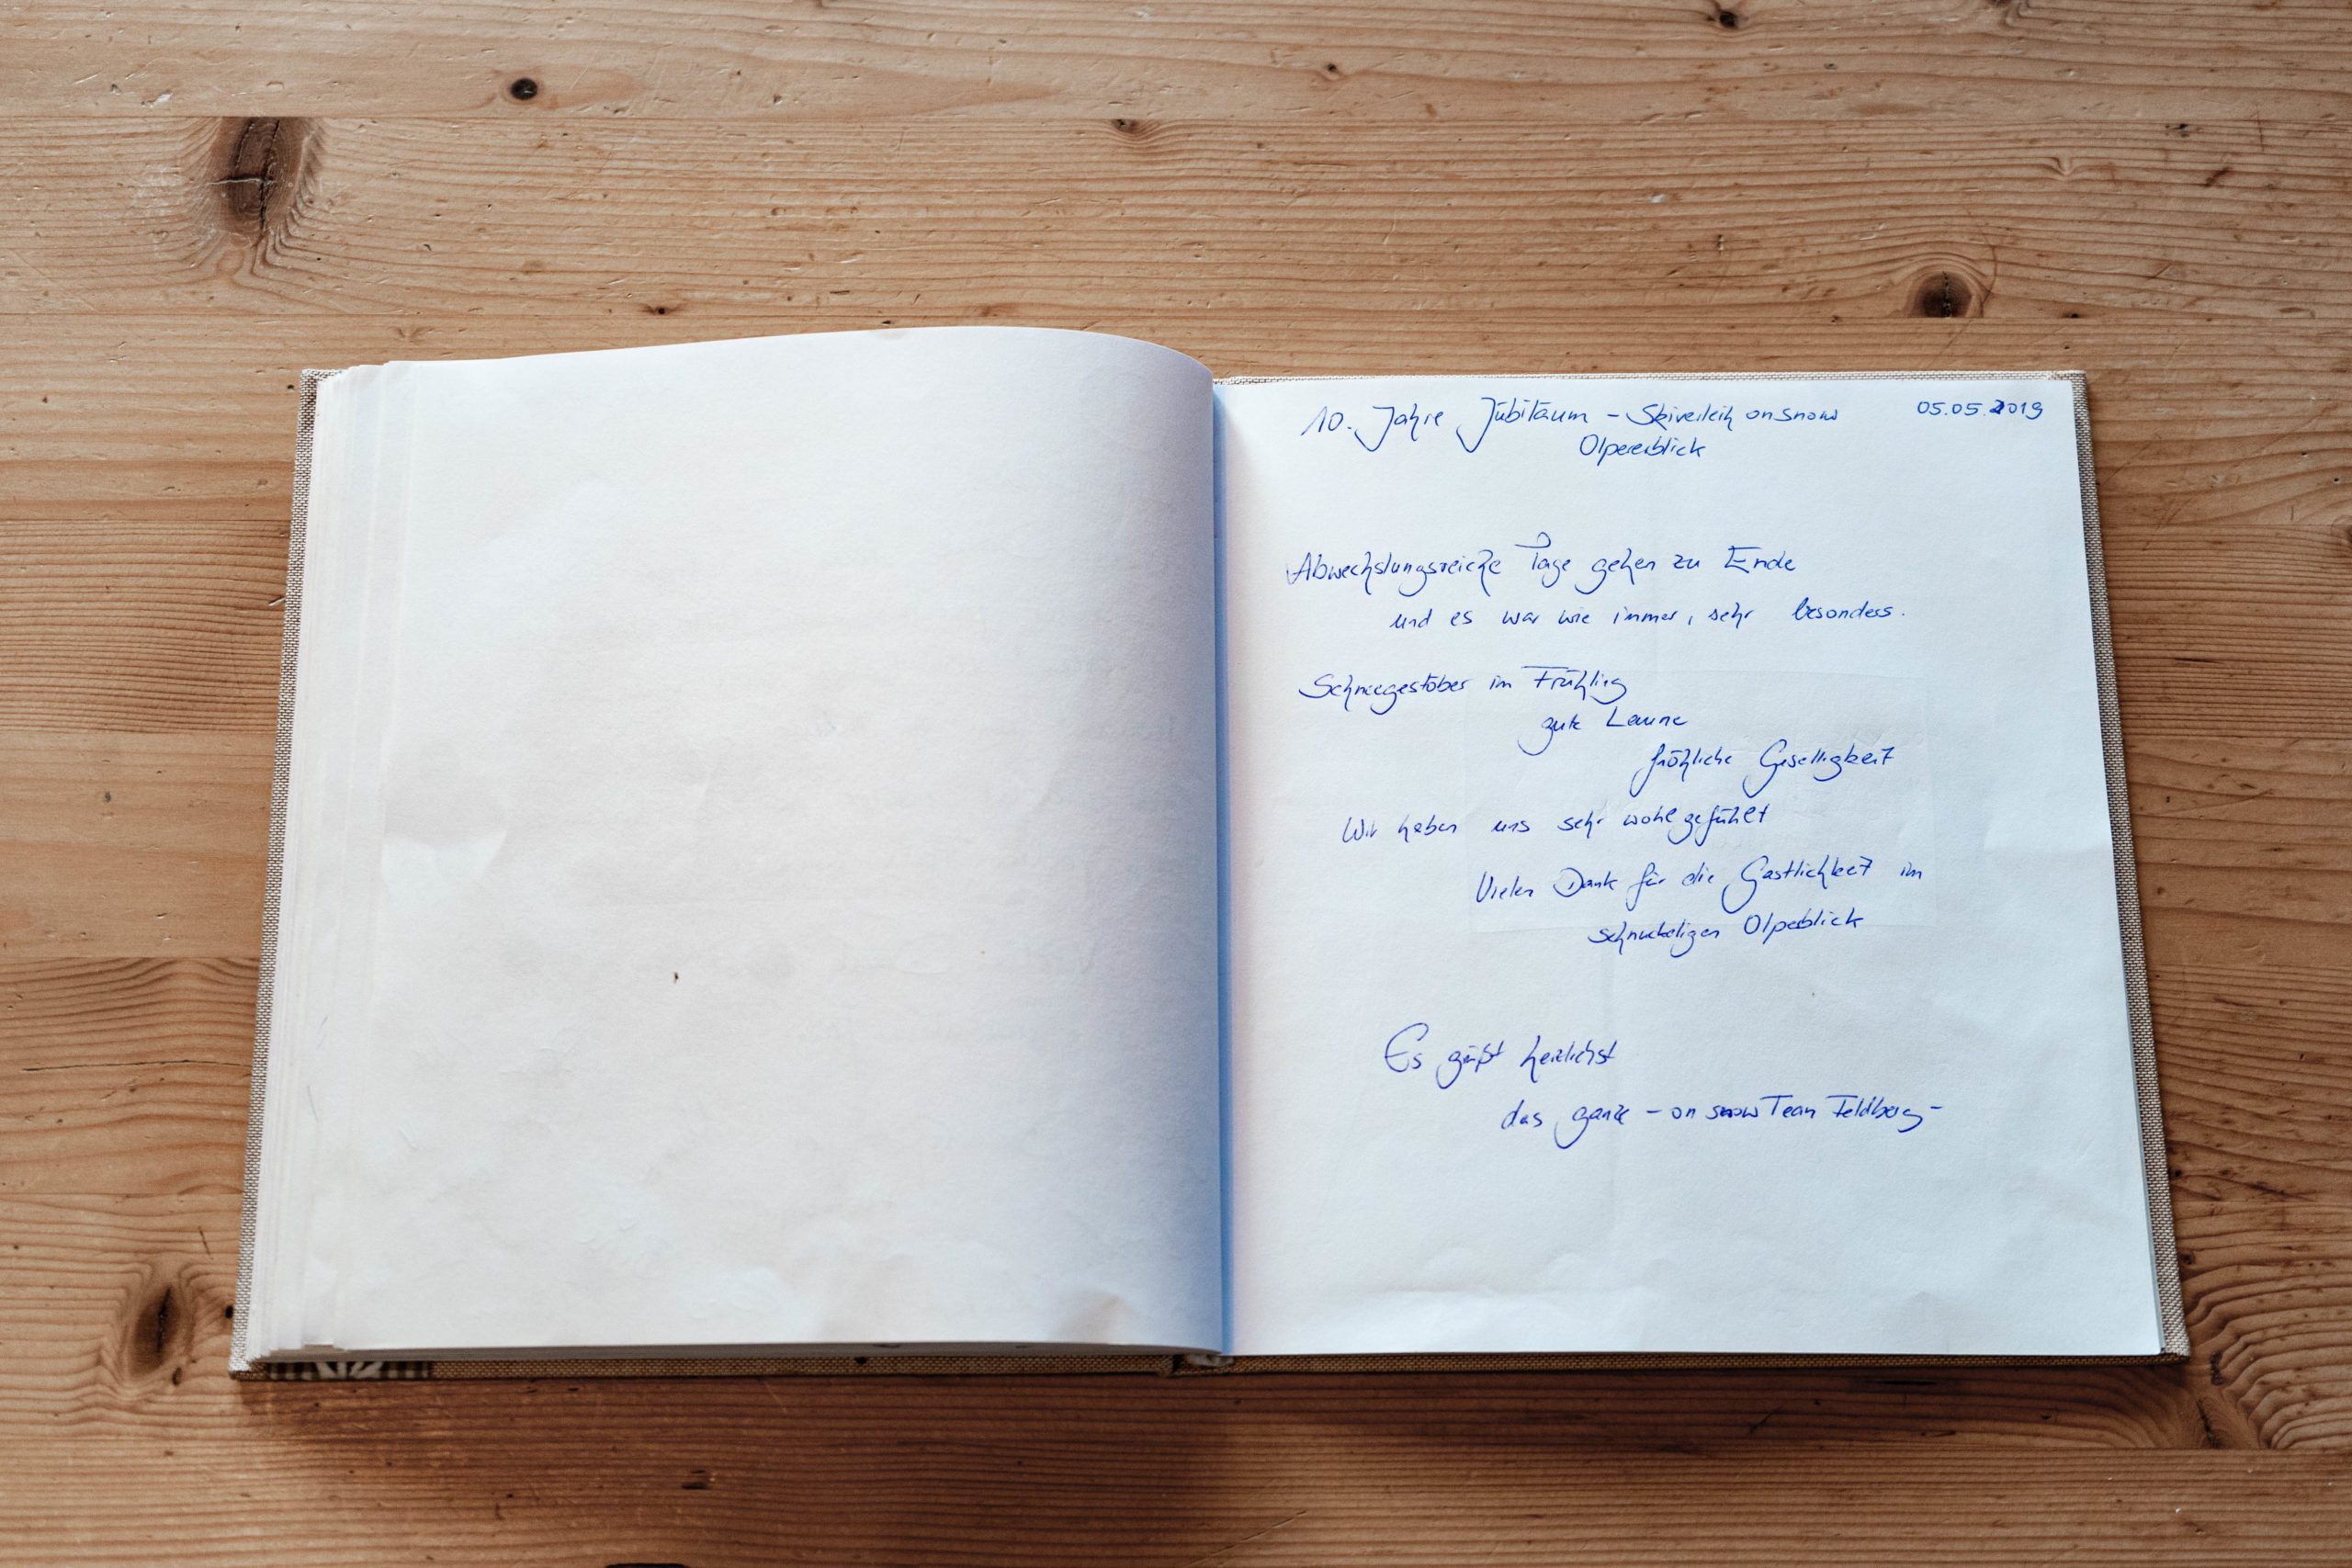 10. Jahre Jubiläum - Skiverleih onsnow 05.05.2019
Olpererblick
Abwechslungsreiche Tage gehen zu Ende
und es war wie immer, sehr besonders.
Schneegestöber im Frühling
gute Laune
fröhliche Geselligkeit
Wir haben uns sehr wohl gefühlt
Vielen Dank für die Gastlichkeit im
schnuckeligen Olperblick
Es grüßt herzlichst
das ganze - on snow Team Feldberg -